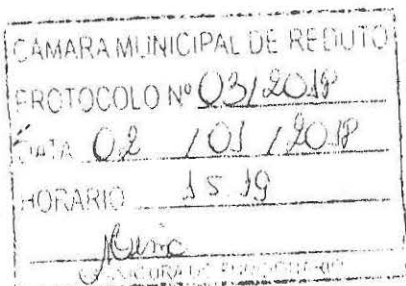 CAMARA MUNICIPAL DE REDUTO
PROTOCOLO Nº 03/2018
DATA 02 / 01 / 2018
HORARIO 15 19
ASSINATURA DE FUNCIONARIO